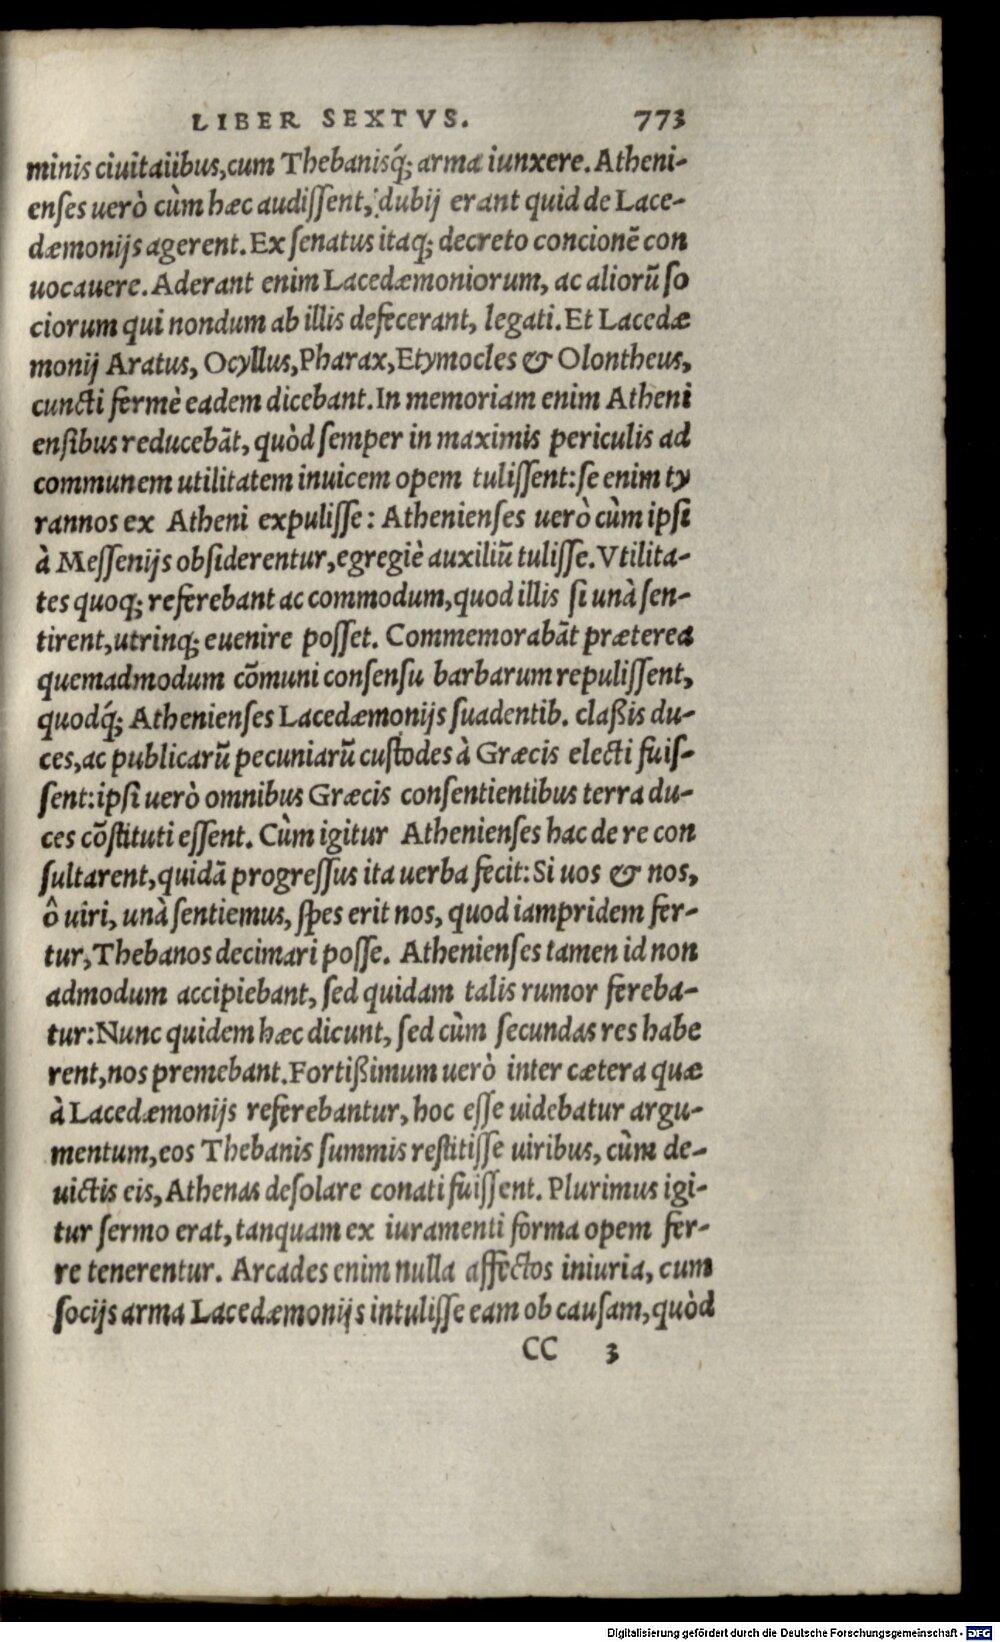 LIBER SEXTVS. 773
minis ciuitaiibus, cum Thebanisq́; arma iunxere. Atheni-
enses uerò cùm hæc audissent, dubij erant quid de Lace-
dæmonijs agerent. Ex senatus itaq; decreto concionē con
uocauere. Aderant enim Lacedæmoniorum, ac aliorū so
ciorum qui nondum ab illis defecerant, legati. Et Lacedæ
monij Aratus, Ocyllus, Pharax, Etymocles & Olontheus,
cuncti fermè eadem dicebant. In memoriam enim Atheni
ensibus reducebāt, quòd semper in maximis periculis ad
communem utilitatem inuicem opem tulissent: se enim ty
rannos ex Atheni expulisse: Athenienses uerò cùm ipsi
à Messenijs obsiderentur, egregiè auxiliū tulisse. Vtilita-
tes quoq; referebant ac commodum, quod illis si unà sen-
tirent, utrinq; euenire posset. Commemorabāt præterea
quemadmodum cōmuni consensu barbarum repulissent,
quodq́; Athenienses Lacedæmonijs suadentib. claßis du-
ces, ac publicarū pecuniarū custodes à Græcis electi fuis-
sent: ipsi uerò omnibus Græcis consentientibus terra du-
ces cōstituti essent. Cùm igitur Athenienses hac de re con
sultarent, quidā progressus ita uerba fecit: Si uos & nos,
ô uiri, unà sentiemus, spes erit nos, quod iampridem fer-
tur, Thebanos decimari posse. Athenienses tamen id non
admodum accipiebant, sed quidam talis rumor fereba-
tur: Nunc quidem hæc dicunt, sed cùm secundas res habe
rent, nos premebant. Fortißimum uerò inter cætera quæ
à Lacedæmonijs referebantur, hoc esse uidebatur argu-
mentum, eos Thebanis summis restitisse uiribus, cùm de-
uictis eis, Athenas desolare conati fuissent. Plurimus igi-
tur sermo erat, tanquam ex iuramenti forma opem fer-
re tenerentur. Arcades enim nulla affectos iniuria, cum
socijs arma Lacedæmonijs intulisse eam ob causam, quòd
CC 3
Digitalisierung gefördert durch die Deutsche Forschungsgemeinschaft - DFG